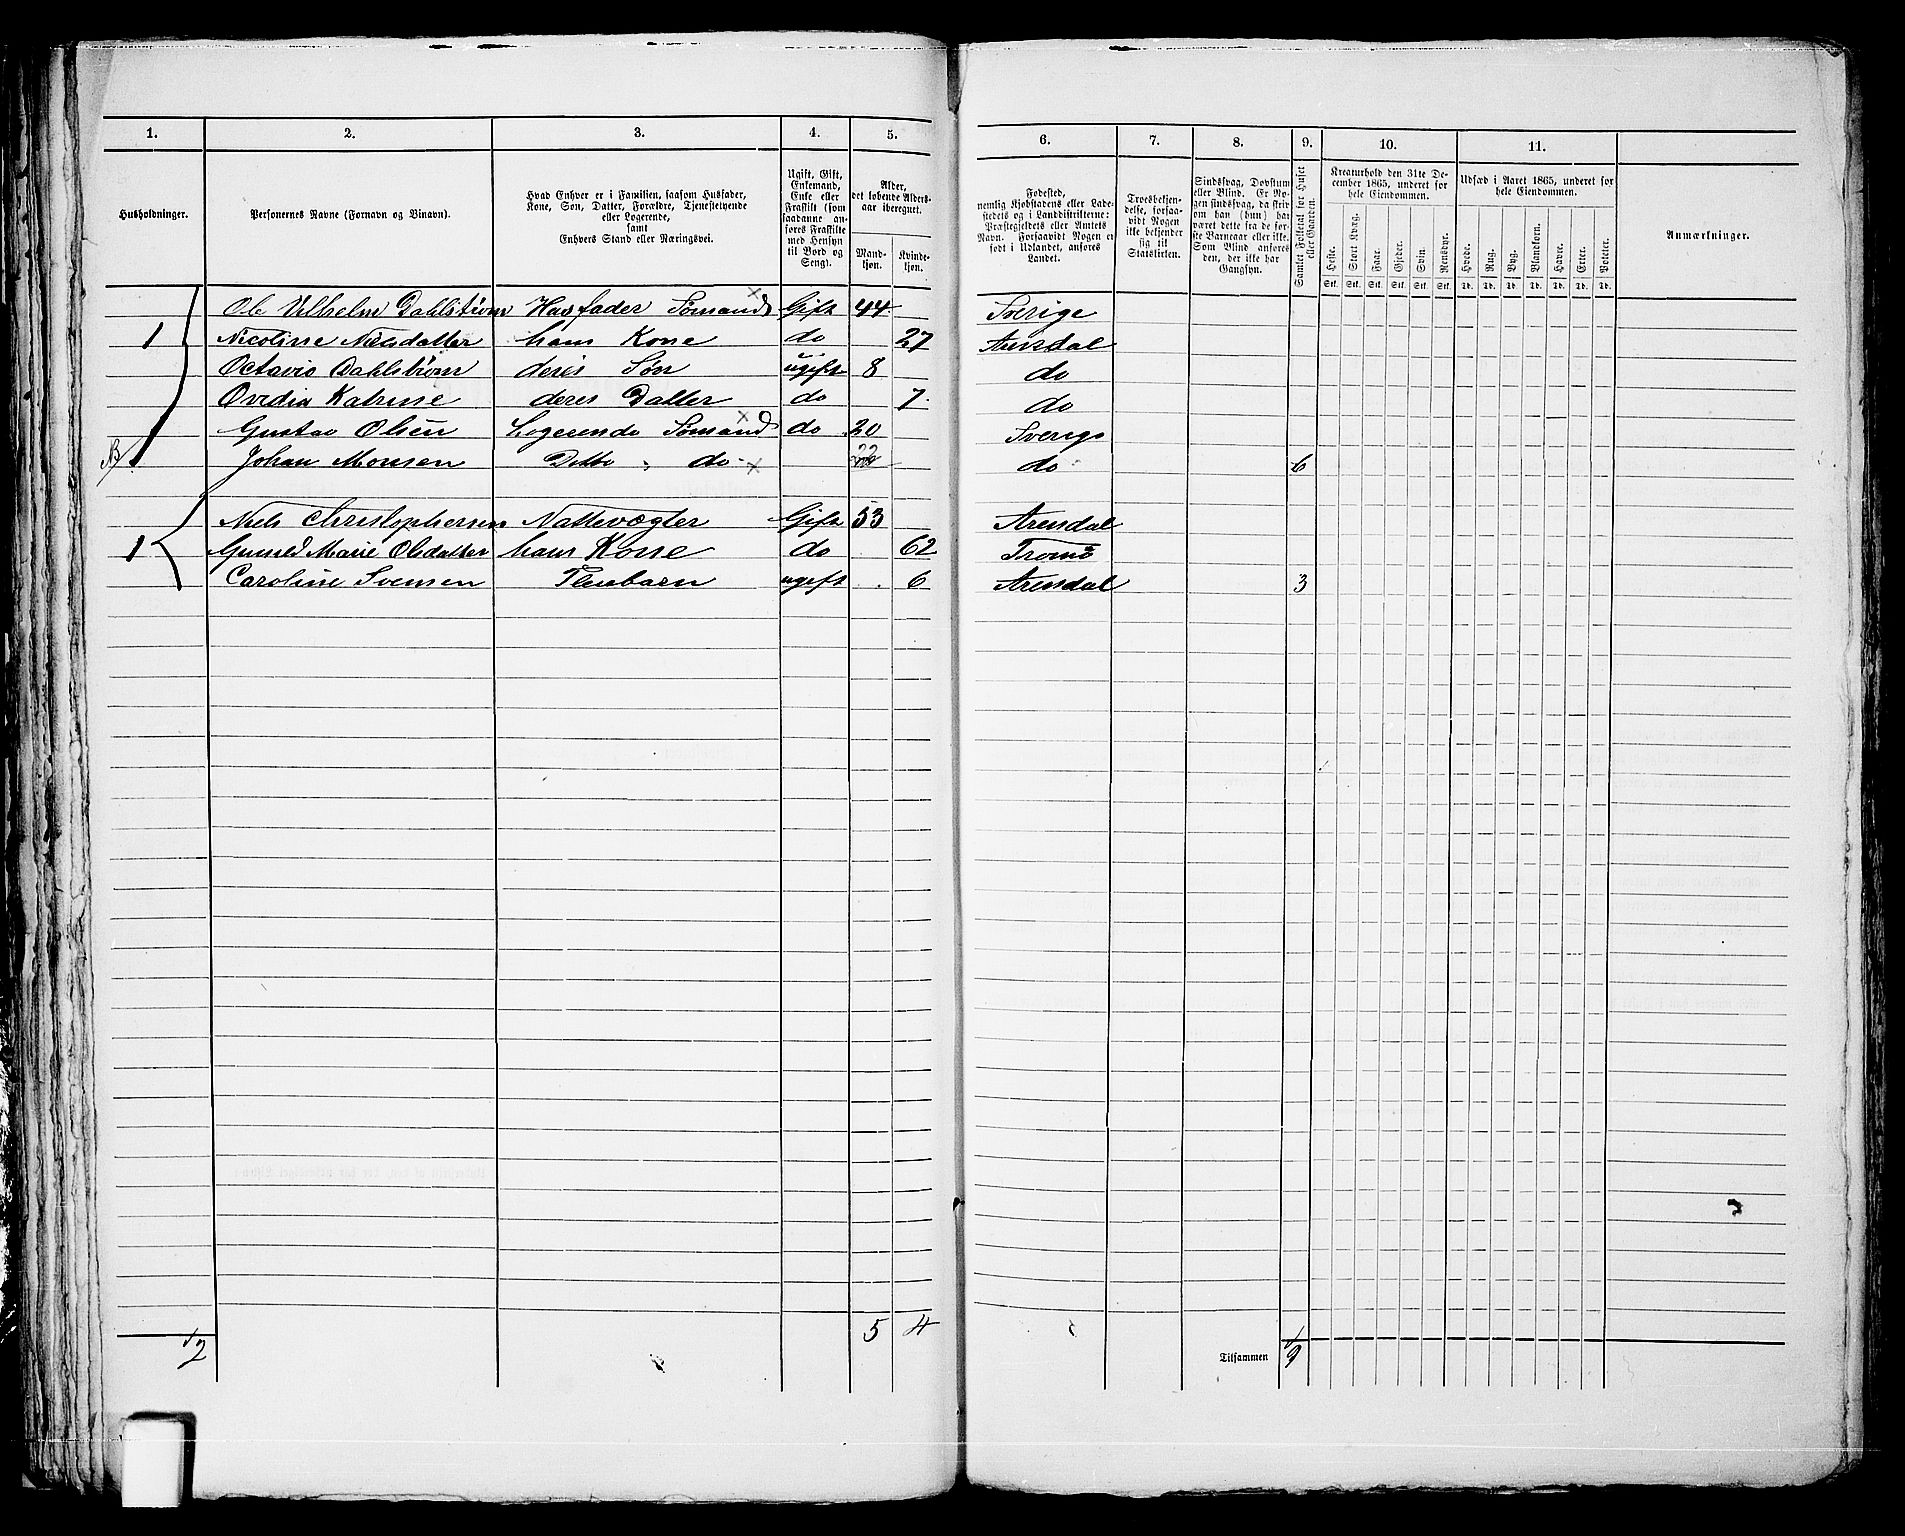 1. 2. 3. 4. 5. 6. 7. 8. 9. 10. 11.
Husholdninger.
Personernes Navne (Fornavn og Binavn).
Hvad Enhver er i Familien, saasom Husfader,
Kone, Søn, Datter, Forældre, Tjenestetyende
eller Logerende,
samt
Enhvers Stand eller Næringsvei.
Ugift, Gift,
Enkemand,
Enke eller
Fraskilt (som
saadanne an-
føres Fraskilte
med Hensyn
til Bord og
Seng).
Alder,
det løbende Alders-
aar iberegnet.
Mand-
kjøn.
Kvinde-
kjøn.
Fødested,
nemlig Kjøbstadens eller Lade-
stedets og i Landdistrikterne:
Præstegjeldets eller Amtets
Navn. Forsaavidt Nogen er
født i Udlandet, anføres
Landet.
Troesbekjen-
delse, forsaa-
vidt Nogen
ikke bekjender
sig til
Statskirken.
Sindssvag, Døvstum
eller Blind. Er No-
gen sindssvag, da skriv
om han (hun) har
været dette fra de før-
ste Barneaar eller ikke.
Som Blind anføres
den, der ikke har
Gangsyn.
Samlet Folketal for Huset
eller Gaarden.
Kreaturhold den 31te De-
cember 1865, underet for
hele Eiendommen.
Heste. Stort Kvæg. Faar. Gjeder. Svin. Rensdyr.
Stk. Stk. Stk. Stk. Stk. Stk.
Udsæd i Aaret 1865, underet for
hele Eiendommen.
Hvede. Rug. Byg. Blandkorn. Havre. Erter. Poteter.
Td. Td. Td. Td. Td. Td. Td.
Anmærkninger.
Ole Vilhelm Dahlstrøm Husfader Sømand Gift 44 Sverige
1 Nicoline Nielsdatter hans Kone do 27 Arendal
Octavio Dahlstrøm deres Søn ugift 8 do
Ovedia Katrine deres Datter do 7 do
Gustav Olsen Logerende Sømand do 20 Sverige
Johan Monsen Ditto do 22 do 6
Niels Christophersen Nattevægter Gift 53 Arendal
1 Gunild Marie Olsdatter hans Kone do 62 Tromø
Caroline Svensen Pleiebarn ugift 6 Arendal 3
2 5 4
Tilsammen 9